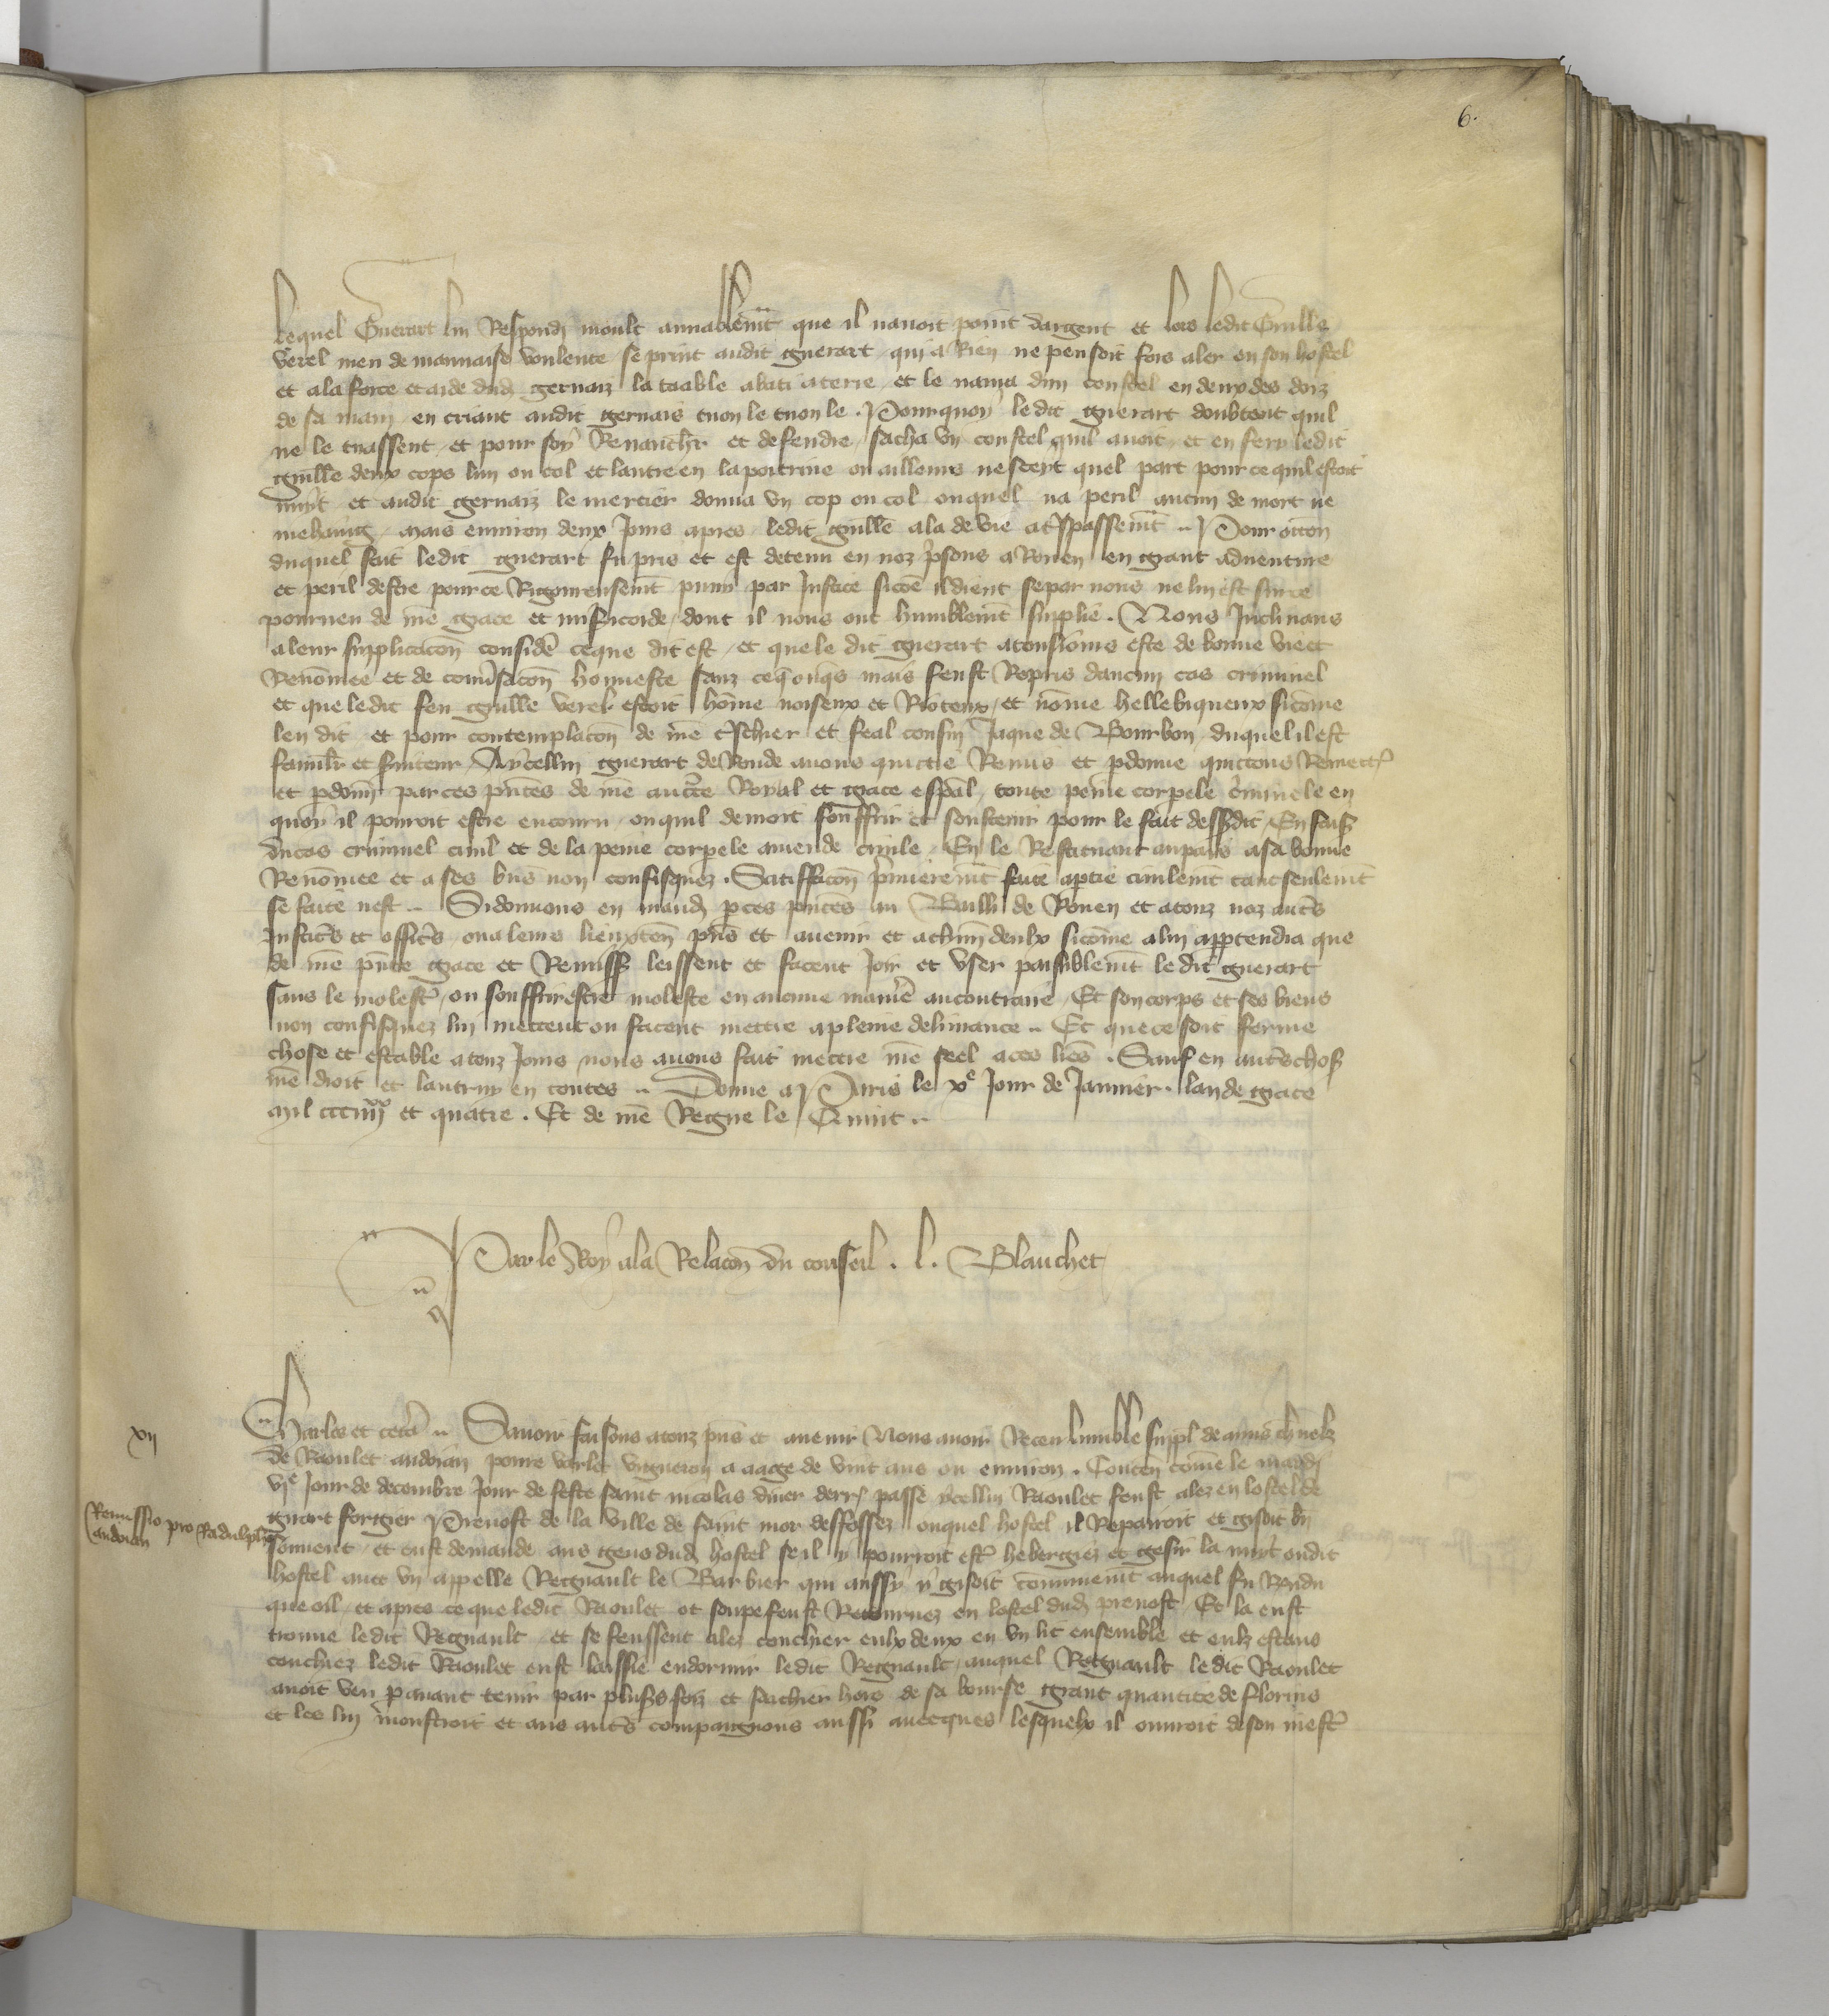 6.
Lequel Guerart lui Respondi moult amiablemt que il navoit point dargent et lors ledit Guille
verel meu de mauvaise voulente se print audit guerart qui a Rien ne pensoit fors aler en son hostel
et ala force et aide dud gervaiz la taable abati a terre et le navra dun coustel en deux des doiz
de sa main en criant audit gervais tuon le tuon le. Pourquoy ledit guerart doubtent quil
ne le tuassent et pour soy Revanchr et defendre sacha un coustel quil avoit et en fery ledit
guille deux cops lun ou col et lautre en la poitrine ou ailleurs ne scevt quel part pour ce quil estoit
nuyt et audit gervaiz le mercier donna un cop ou col ouquel na peril aucun de mort ne
mehaing mais environ deux jours apres ledit guille ala de vie a tspassemt .. Pour occon
duquel fait ledit guerart fu pris et est detenu en noz psons a Rouen en grant adventure
et peril destre pour ce Rigoureusemt puni par Justice sicoe il dient se par nous ne lui est sur ce
pourveu de nre grace et misicorde dont il nous ont humblemt supplie. Nous Inclinans
a leur supplicacon consider ce que dit est et que le dit guerart a tousiours este de bonne vie et
Renommee et de conversacon honneste sanz ce q onqs mais feust Repris daucun cas criminel
et que ledit feu guille verel estoit homme noiseux et Rioteux et nomme hellebiqueux sicome
len dit et pour contemplacon de nre tschier et feal cousin Jaque de Bourbon duquel il est
familr et suiteur Aycellui guerart de Ronde avons quictie Remis et pdonne quictons Remett
et pdonn par ces pntes de nre aucte Royal et grace espal toute peine corpele cminele en
quoy il pouroit estre encouru ou quil devroit souffrir et soustenir pour le fait dessusdit En fais
du cas criminel civil et de la peine corpele amende civile En le Restituant au pais a sa bonne
Renommee et a ses bns non confisquez. Satiffacon pmieremt faite aptie civilemt tant seulemt
se faite nest .. Si donnons en mand p ces pntes au Bailli de Rouen et a touz noz auts
Justics et offics ou a leurs lieuxten pns et avenir et a chun deulx sicome a lui appartendra que
de nre pnte grace et Remiss leissent et facent Joir et user paisiblemt le dit guerart
sans le molest ou souffrir estre moleste en aucune manie au contraire Et son corps et ses biens
non confisquez lui mettent ou facent mettre a pleine delivrance .. Et que ce soit ferme
chose et estable a touz jours nous avons fait mettre nre seel a ces lres. Sauf en auts choss
nre droit et lautruy en toutes .. Donne a Paris le xe Jour de Janvier. lan de grace
mil ccciiiixx et quatre. Et de nre Regne le Quint ..
Par le Roy a la Relacon du conseil. l. Blanchet
xii
Charles et ceta .. Savoir faisons a touz pns et avenir Nous avoir Receu humble suppl de amis chnelz
de Raoulet audoian povre varlet vigneron a aage de vint ans ou environ. Conten come le mardi
vie Jour de decembre Jour de feste saint nicolas diver derr passe ycellui Raoulet feust alez en lostel de
Remissio pro Radulpho
audoian
guart forgier Prevost de la ville de saint mor des fossez ouquel hostel il Repairoit et gisoit bn
souvent et eust demande aus gens dud hostel se il y pourroit est hebergiez et gesir la nuyt oudit
hostel avec un appelle Regnault le Barbier qui aussy y gisoit communemt auquel fu Rendu
que oil et apres ce que ledit Raoulet ot soupe feust Retournez en lostel dud prevost Et la eust
trouve ledit Regnault et se feussent alez couchier eulx deux en un lit ensemble et eulz estans
couchiez ledit Raoulet eust laissie endormir ledit Regnault auquel Regnault le dit Raoulet
avoit veu p avant tenir par pluss foiz et sachier hors de sa bourse grant quantite de florins
et les lui monstroit et aus auts compaignons aussi avecques lesquelx il ouvroit de son mest